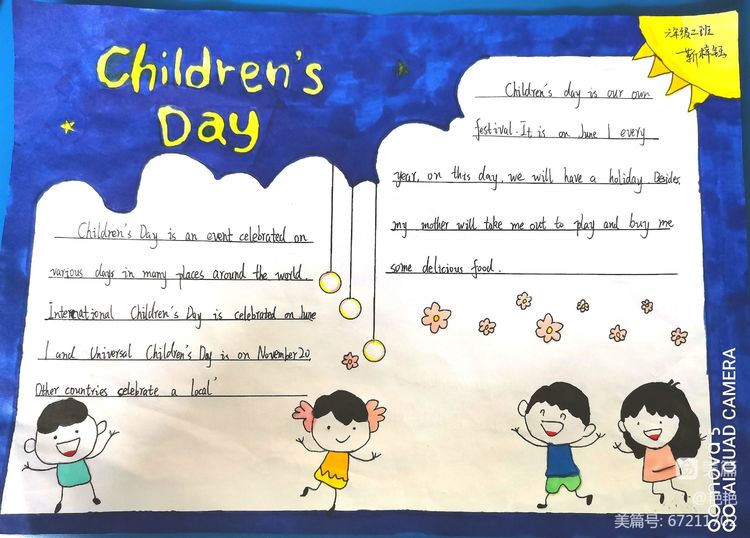 Children's
Day
六年级二班
靳梓钰
Children's Day is an event celebrated on
various days in many places around the world.
International Children's Day is celebrated on June
1 and Universal Children's Day is on November 20.
Other countries celebrate a local'
Children's day is our own
festival. It is on June 1 every
year, on this day, we will have a holiday. Besides,
my mother will take me out to play and buy me
some delicious food.
nova 5
AI QUAD CAMERA
美篇
@艳艳
美篇号: 67211702